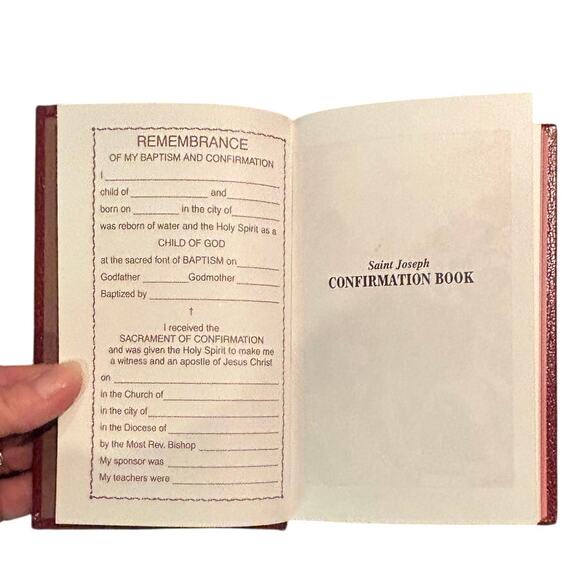 REMEMBRANCE
OF MY BAPTISM AND CONFIRMATION
I
child of and
born on in the city of
was reborn of water and the Holy Spirit as a
CHILD OF GOD
at the sacred font of BAPTISM on
Godfather Godmother
Baptized by
†
I received the
SACRAMENT OF CONFIRMATION
and was given the Holy Spirit to make me
a witness and an apostle of Jesus Christ
on
in the Church of
in the city of
in the Diocese of
by the Most Rev. Bishop
My sponsor was
My teachers were
Saint Joseph
CONFIRMATION BOOK